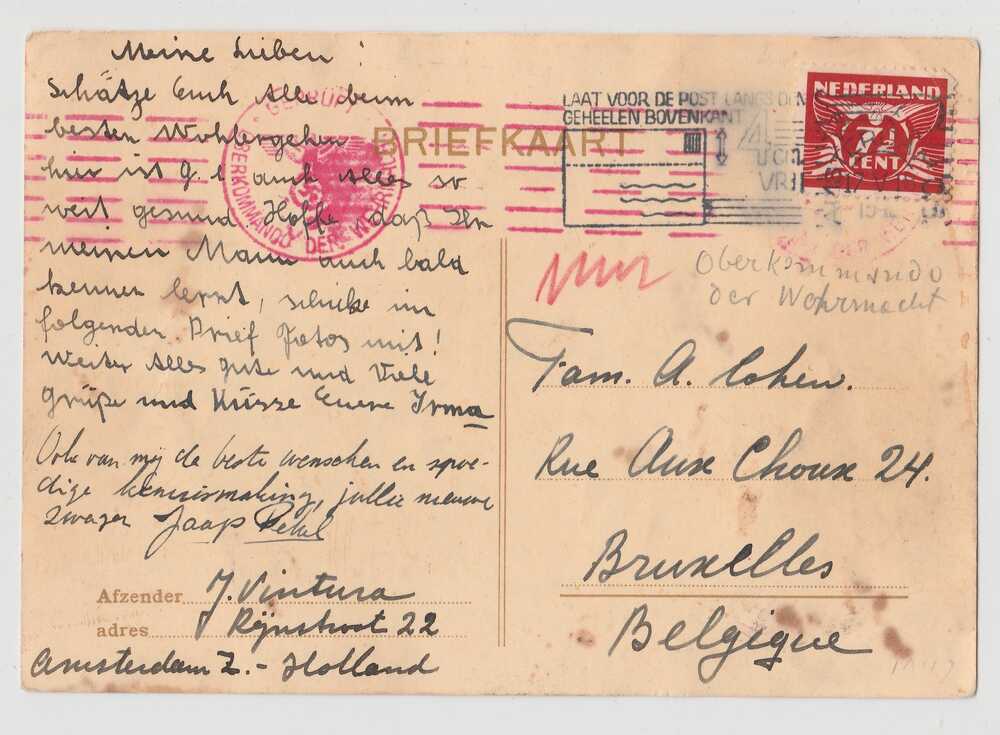 Meine Lieben!
Schätze Euch Alle beim
besten Wohlergehen
hier ist G. l. auch Alles so
weit gesund. Hoffe, daß Ihr
meinen Mann auch bald
kennen lernt, schicke im
folgenden Brief Fotos mit!
Weiter Alles gute und Viele
Grüße und Küsse Euere Irma
Ook van mij de beste wenschen en spoe-
dige kennismaking, jullie nieuwe
zwager Jaap
Afzender J. Vintura
adres Rijnstraat 22
Amsterdam Z. - Holland
BRIEFKAART
LAAT VOOR DE POST LANGS DEN
GEHEELEN BOVENKANT
4
VRIJ
NEDERLAND
7½
CENT
OBERKOMMANDO DER WEHRMACHT
Oberkommando
der Wehrmacht
Fam. A. Cohen.
Rue Aux Choux 24.
Bruxelles
Belgique